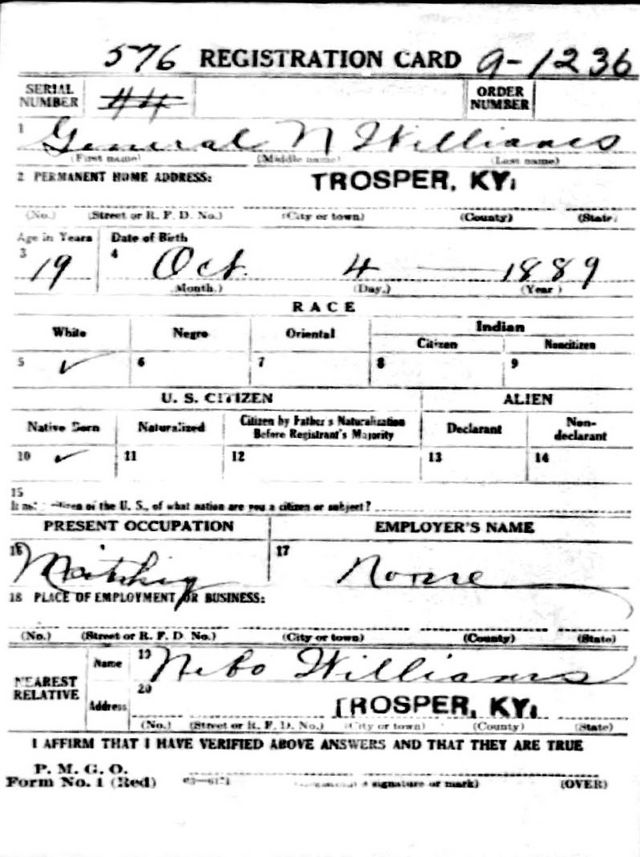 576 REGISTRATION CARD 9-1236
SERIAL NUMBER 44 ORDER NUMBER
1 General N Williams
(First name) (Middle name) (Last name)
2 PERMANENT HOME ADDRESS: TROSPER, KY.
(No.) (Street or R. F. D. No.) (City or town) (County) (State)
Age in Years Date of Birth
3 19 4 Oct 4 — 1889
(Month.) (Day.) (Year)
RACE
White Negro Oriental Indian
Citizen Noncitizen
5 ✓ 6 7 8 9
U. S. CITIZEN ALIEN
Native Born Naturalized Citizen by Father's Naturalization Before Registrant's Majority Declarant Non-declarant
10 ✓ 11 12 13 14
15
If not citizen of the U. S., of what nation are you a citizen or subject?
PRESENT OCCUPATION EMPLOYER'S NAME
16 17 None
18 PLACE OF EMPLOYMENT OR BUSINESS:
(No.) (Street or R. F. D. No.) (City or town) (County) (State)
NEAREST RELATIVE Name 19 Nebo Williams
Address 20 TROSPER, KY.
(No.) (Street or R. F. D. No.) (City or town) (County) (State)
I AFFIRM THAT I HAVE VERIFIED ABOVE ANSWERS AND THAT THEY ARE TRUE
P. M. G. O.
Form No. 1 (Red) signature or mark) (OVER)